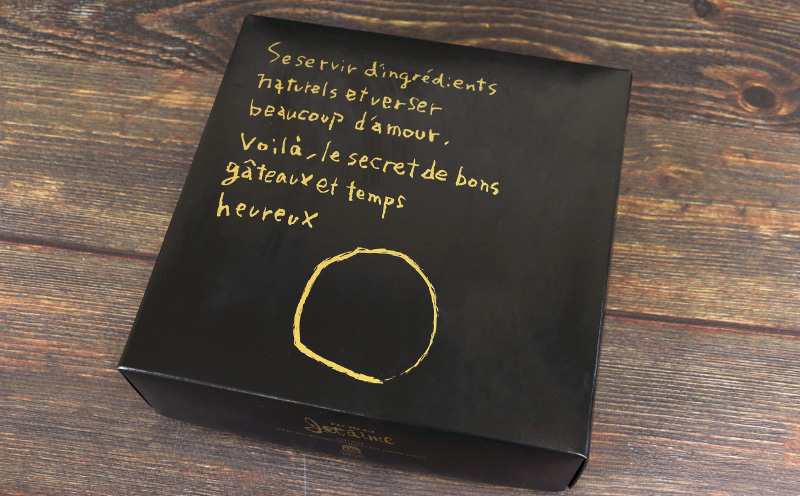 Se servir d'ingrédients
naturels et verser
beaucoup d'amour.
Voilà, le secret de bons
gâteaux et temps
heureux